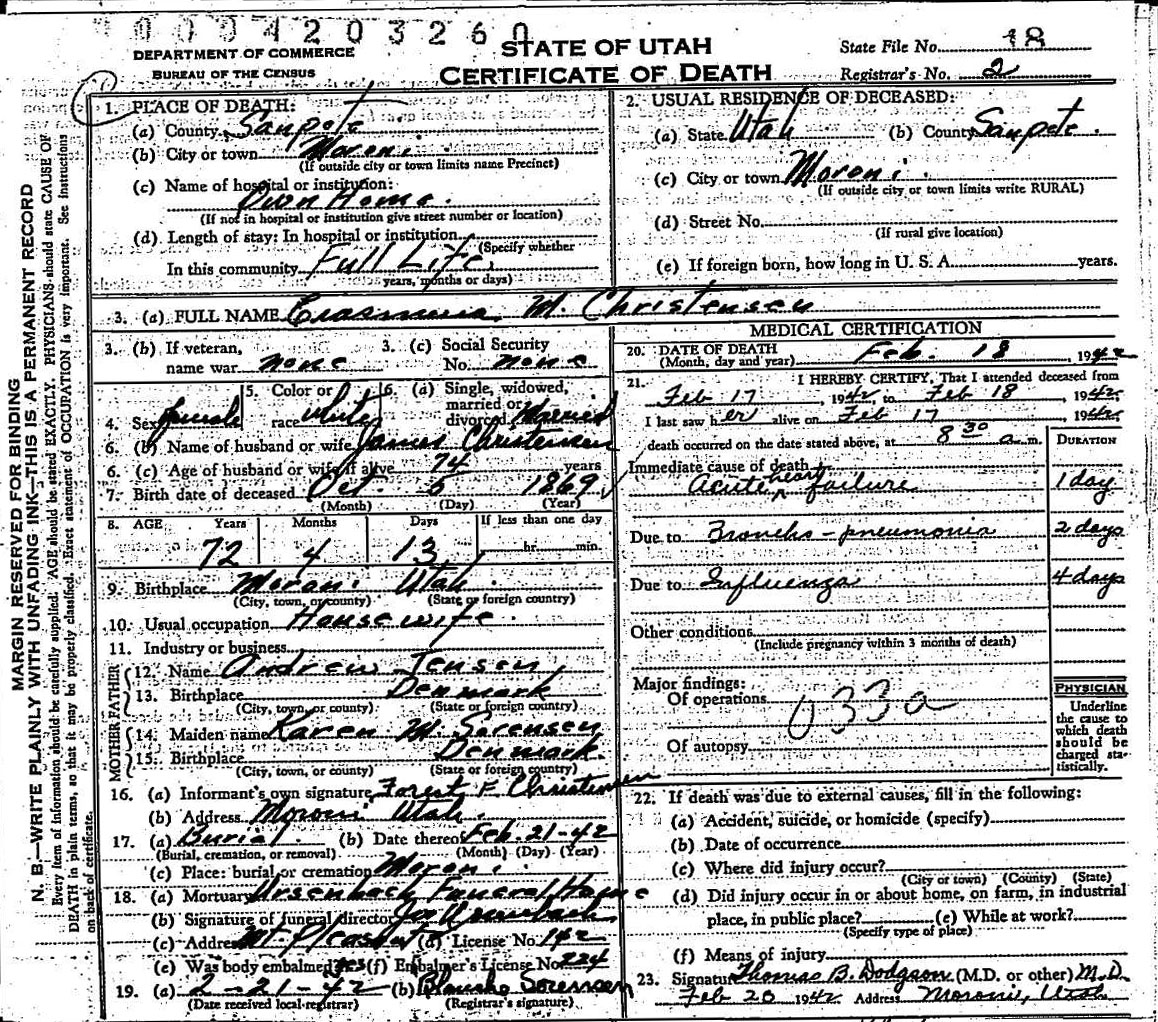 0004203260
DEPARTMENT OF COMMERCE
BUREAU OF THE CENSUS
STATE OF UTAH
CERTIFICATE OF DEATH
State File No. 18
Registrar's No. 2
MARGIN RESERVED FOR BINDING
N. B.—WRITE PLAINLY WITH UNFADING INK—THIS IS A PERMANENT RECORD
Every item of information should be carefully supplied. AGE should be stated EXACTLY. PHYSICIANS should state CAUSE OF
DEATH in plain terms, so that it may be properly classified. Exact statement of OCCUPATION is very important. See instructions
on back of certificate.
1. PLACE OF DEATH:
(a) County Sanpete
(b) City or town Moroni
(If outside city or town limits name Precinct)
(c) Name of hospital or institution:
Own Home
(If not in hospital or institution give street number or location)
(d) Length of stay: In hospital or institution
(Specify whether
In this community Full Life
years, months or days)
2. USUAL RESIDENCE OF DECEASED:
(a) State Utah (b) County Sanpete
(c) City or town Moroni
(If outside city or town limits write RURAL)
(d) Street No.
(If rural give location)
(e) If foreign born, how long in U. S. A. years.
3. (a) FULL NAME M. Christensen
3. (b) If veteran, 3. (c) Social Security
name war none No. none
4. Sex Female 5. Color or race White 6. (a) Single, widowed, married or divorced Married
6. (b) Name of husband or wife James Christensen
6. (c) Age of husband or wife if alive 74 years
7. Birth date of deceased Oct. 5 1869
(Month) (Day) (Year)
8. AGE Years Months Days If less than one day
72 4 13 hr. min.
9. Birthplace Moroni Utah
(City, town, or county) (State or foreign country)
10. Usual occupation Housewife
11. Industry or business
FATHER
12. Name Andrew Jensen
13. Birthplace Denmark
(City, town, or county) (State or foreign country)
MOTHER
14. Maiden name Karen M. Sorensen
15. Birthplace Denmark
(City, town, or county) (State or foreign country)
16. (a) Informant's own signature Forest F Christensen
(b) Address Moroni Utah
17. (a) Burial (b) Date thereof Feb. 21-42
(Burial, cremation, or removal) (Month) (Day) (Year)
(c) Place: burial or cremation Moroni
18. (a) Mortuary Ursenbach Funeral Home
(b) Signature of funeral director Ursenbach
(c) Address Mt. Pleasant (d) License No. 142
(e) Was body embalmed yes (f) Embalmer's License No. 224
19. (a) 2-21-42 (b) Blanche Sorensen
(Date received local registrar) (Registrar's signature)
MEDICAL CERTIFICATION
20. DATE OF DEATH
(Month, day and year) Feb. 18, 1942
21. I HEREBY CERTIFY, That I attended deceased from
Feb 17, 1942 to Feb 18, 1942
I last saw her alive on Feb 17 1942
death occurred on the date stated above, at 8 30 a m.
DURATION
Immediate cause of death
Acute heart failure 1 day
Due to Broncho-pneumonia 2 days
Due to Influenza 4 days
Other conditions
(Include pregnancy within 3 months of death)
Major findings:
Of operations
033a
Of autopsy
PHYSICIAN
Underline
the cause to
which death
should be
charged sta-
tistically.
22. If death was due to external causes, fill in the following:
(a) Accident, suicide, or homicide (specify)
(b) Date of occurrence
(c) Where did injury occur?
(City or town) (County) (State)
(d) Did injury occur in or about home, on farm, in industrial
place, in public place? (e) While at work?
(Specify type of place)
(f) Means of injury
23. Signature Thomas B. Dodgson (M.D. or other) M.D.
Feb 20 1942 Address Moroni, Utah